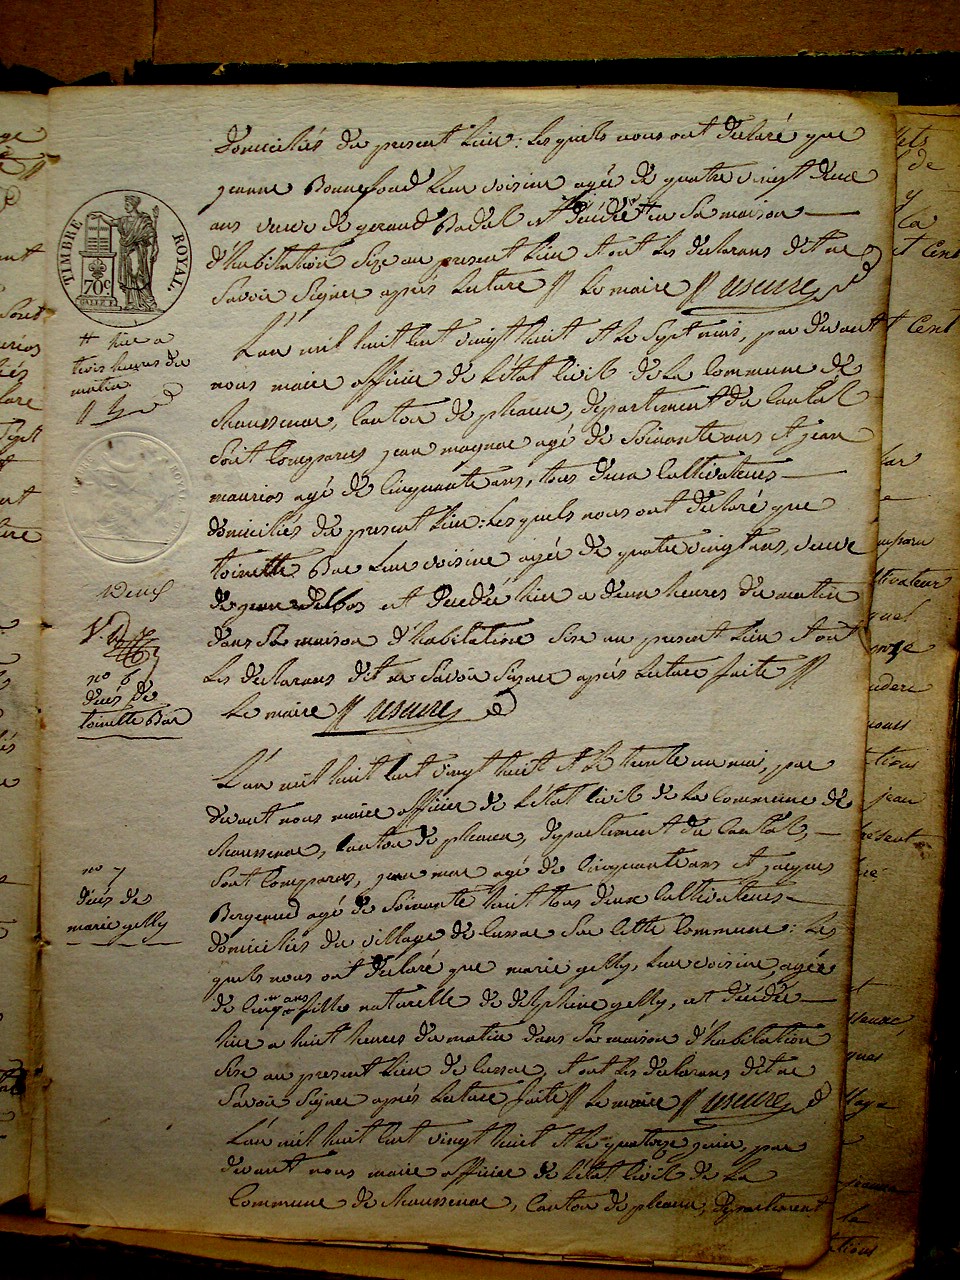 domiciliés du present lieu : les quels nous ont declaré que
jeanne Bonnefond leur voisine agée de quatre vingt deux
ans veuve de geraud Badal est décédée # en sa maison
d'habitation size au present lieu et ont les declarans dit ne
savoir signer après lecture // le maire //
TIMBRE ROYAL.
70c
# hier a
trois heures du
matin
L'an mil huit cent vingt huit et le sept mai, par devant
nous maire officier de l'état civil de la Commune de
Chaussenac, Canton de pleaux, departement du Cantal
sont comparus jean magnac agé de soixante ans et jean
maurios agé de cinquante ans, tous deux cultivateurs
domiciliés du present lieu : les quels nous ont declaré que
toinette Bac leur voisine agée de quatre vingt ans, veuve
de jean delbos est décédée hier a deux heures du matin
dans sa maison d'habitation sise au present lieu et ont
les declarans dit ne savoir signer après lecture faite //
le maire //
no 6
décés de
toinette Bac
L'an mil huit cent vingt huit et le trente un mai, par
devant nous maire officier de l'état civil de la Commune de
Chaussenac, Canton de pleaux, departement du Cantal,
sont comparus, jean mac agé de cinquante ans et jacques
Bergeaud agé de soixante huit tous deux cultivateurs
domiciliés du village de cussac sur cette Commune : les
quels nous ont declaré que marie gelly, leur voisine, agée
de cinq ans fille naturelle de delphine gelly, est décédée
hier a huit heures du matin dans sa maison d'habitation
sise au present lieu de cussac, et ont les declarans dit ne
savoir signer après lecture faite // le maire //
no 7
décés de
marie gelly
L'an mil huit cent vingt huit et le quatorze juin, par
devant nous maire officier de l'état civil de la
Commune de Chaussenac, Canton de pleaux, departement